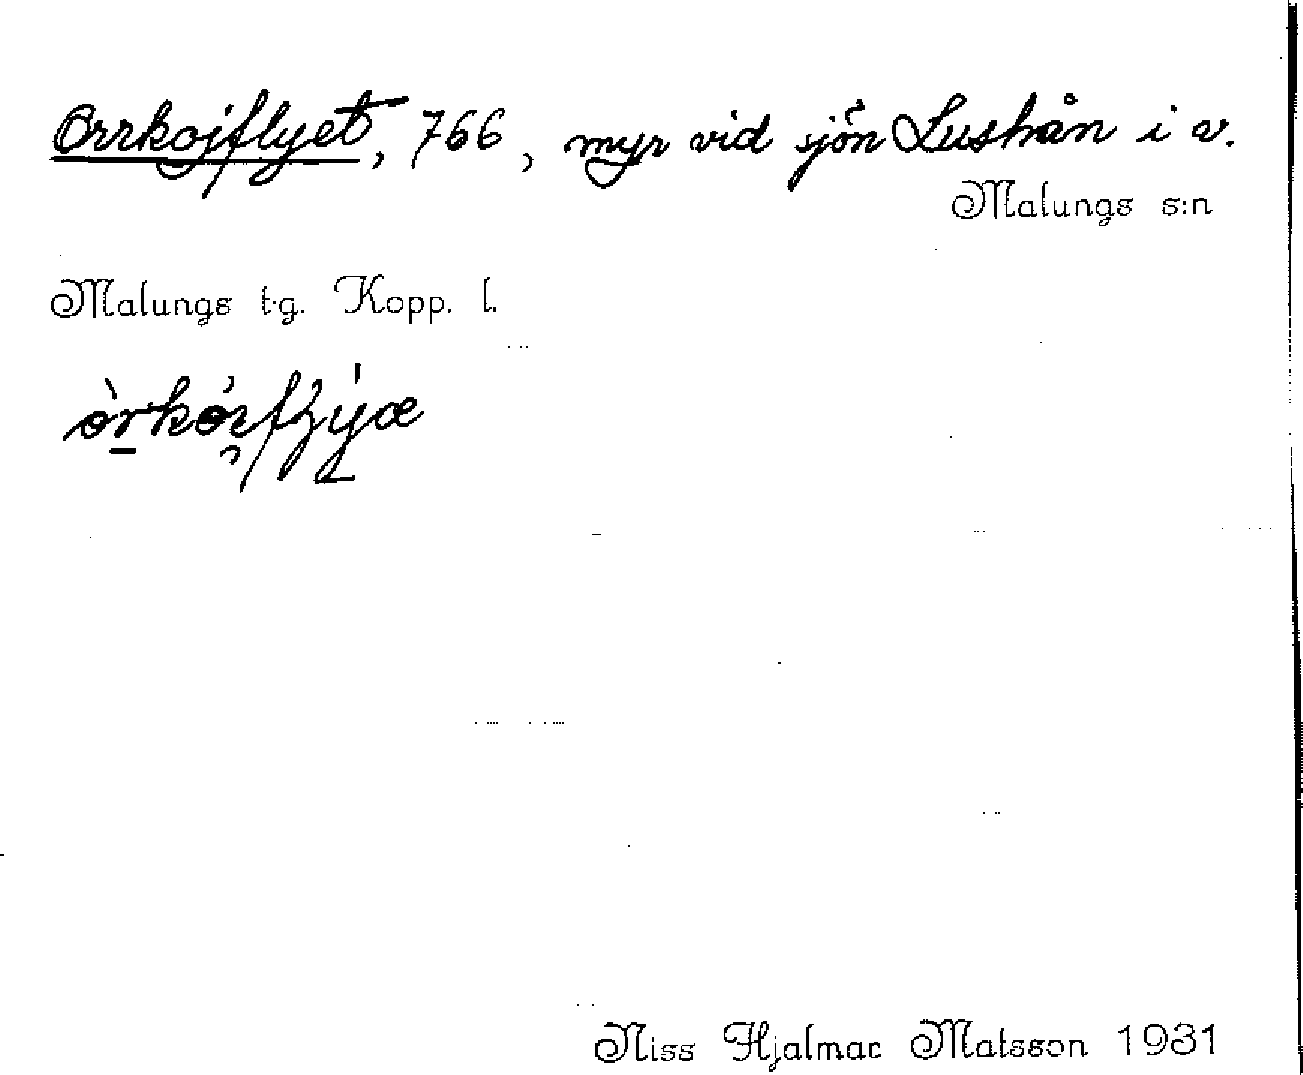 Orrkojflyet, 766, myr vid sjön Lushån i v.
Malungs s:n
Malungs t.g. Kopp. l.
Niss Hjalmar Matsson 1931